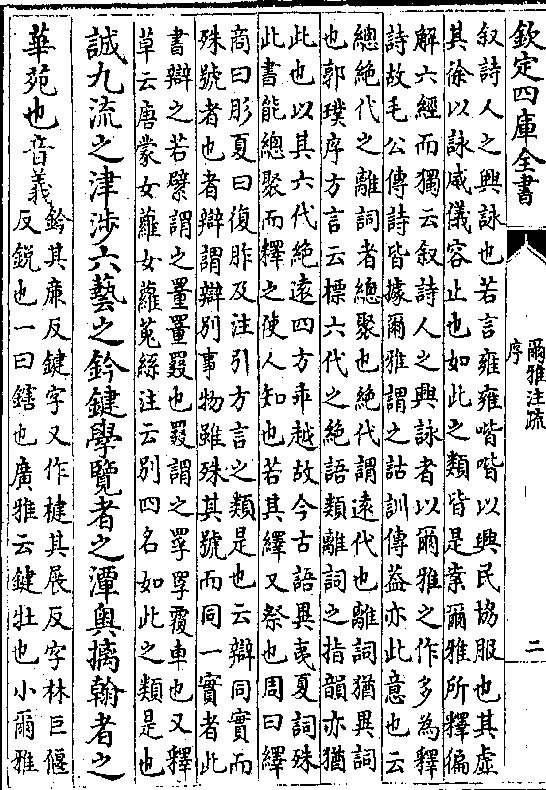 欽定四庫全書
爾雅注疏
序
二
叙詩人之興詠也若言雍雍喈喈以興民協服也其虛
其徐以詠威儀容止也如此之類皆是案爾雅所釋徧
解六經而獨云叙詩人之興詠者以爾雅之作多為釋
詩故毛公傳詩皆據爾雅謂之詁訓傳葢亦此意也云
總絶代之離詞者總聚也絶代謂遠代也離詞猶異詞
也郭璞序方言云標六代之絶語類離詞之指韻亦猶
此也以其六代絶遠四方乖越故今古語異夷夏詞殊
此書能總聚而釋之使人知也若其繹又祭也周曰繹
商曰肜夏曰復胙及注引方言之類是也云辯同實而
殊號者也者辯謂辯别事物雖殊其號而同一實者此
書辯之若繴謂之罿罿罬也罬謂之罦罦覆車也又釋
草云唐蒙女蘿女蘿菟絲注云别四名如此之類是也
誠九流之津涉六藝之鈐鍵學覽者之潭奥摛翰者之
華苑也音義
鈐其廉反鍵字又作楗其展反字林巨偃
反鋭也一曰鎋也廣雅云鍵牡也小爾雅